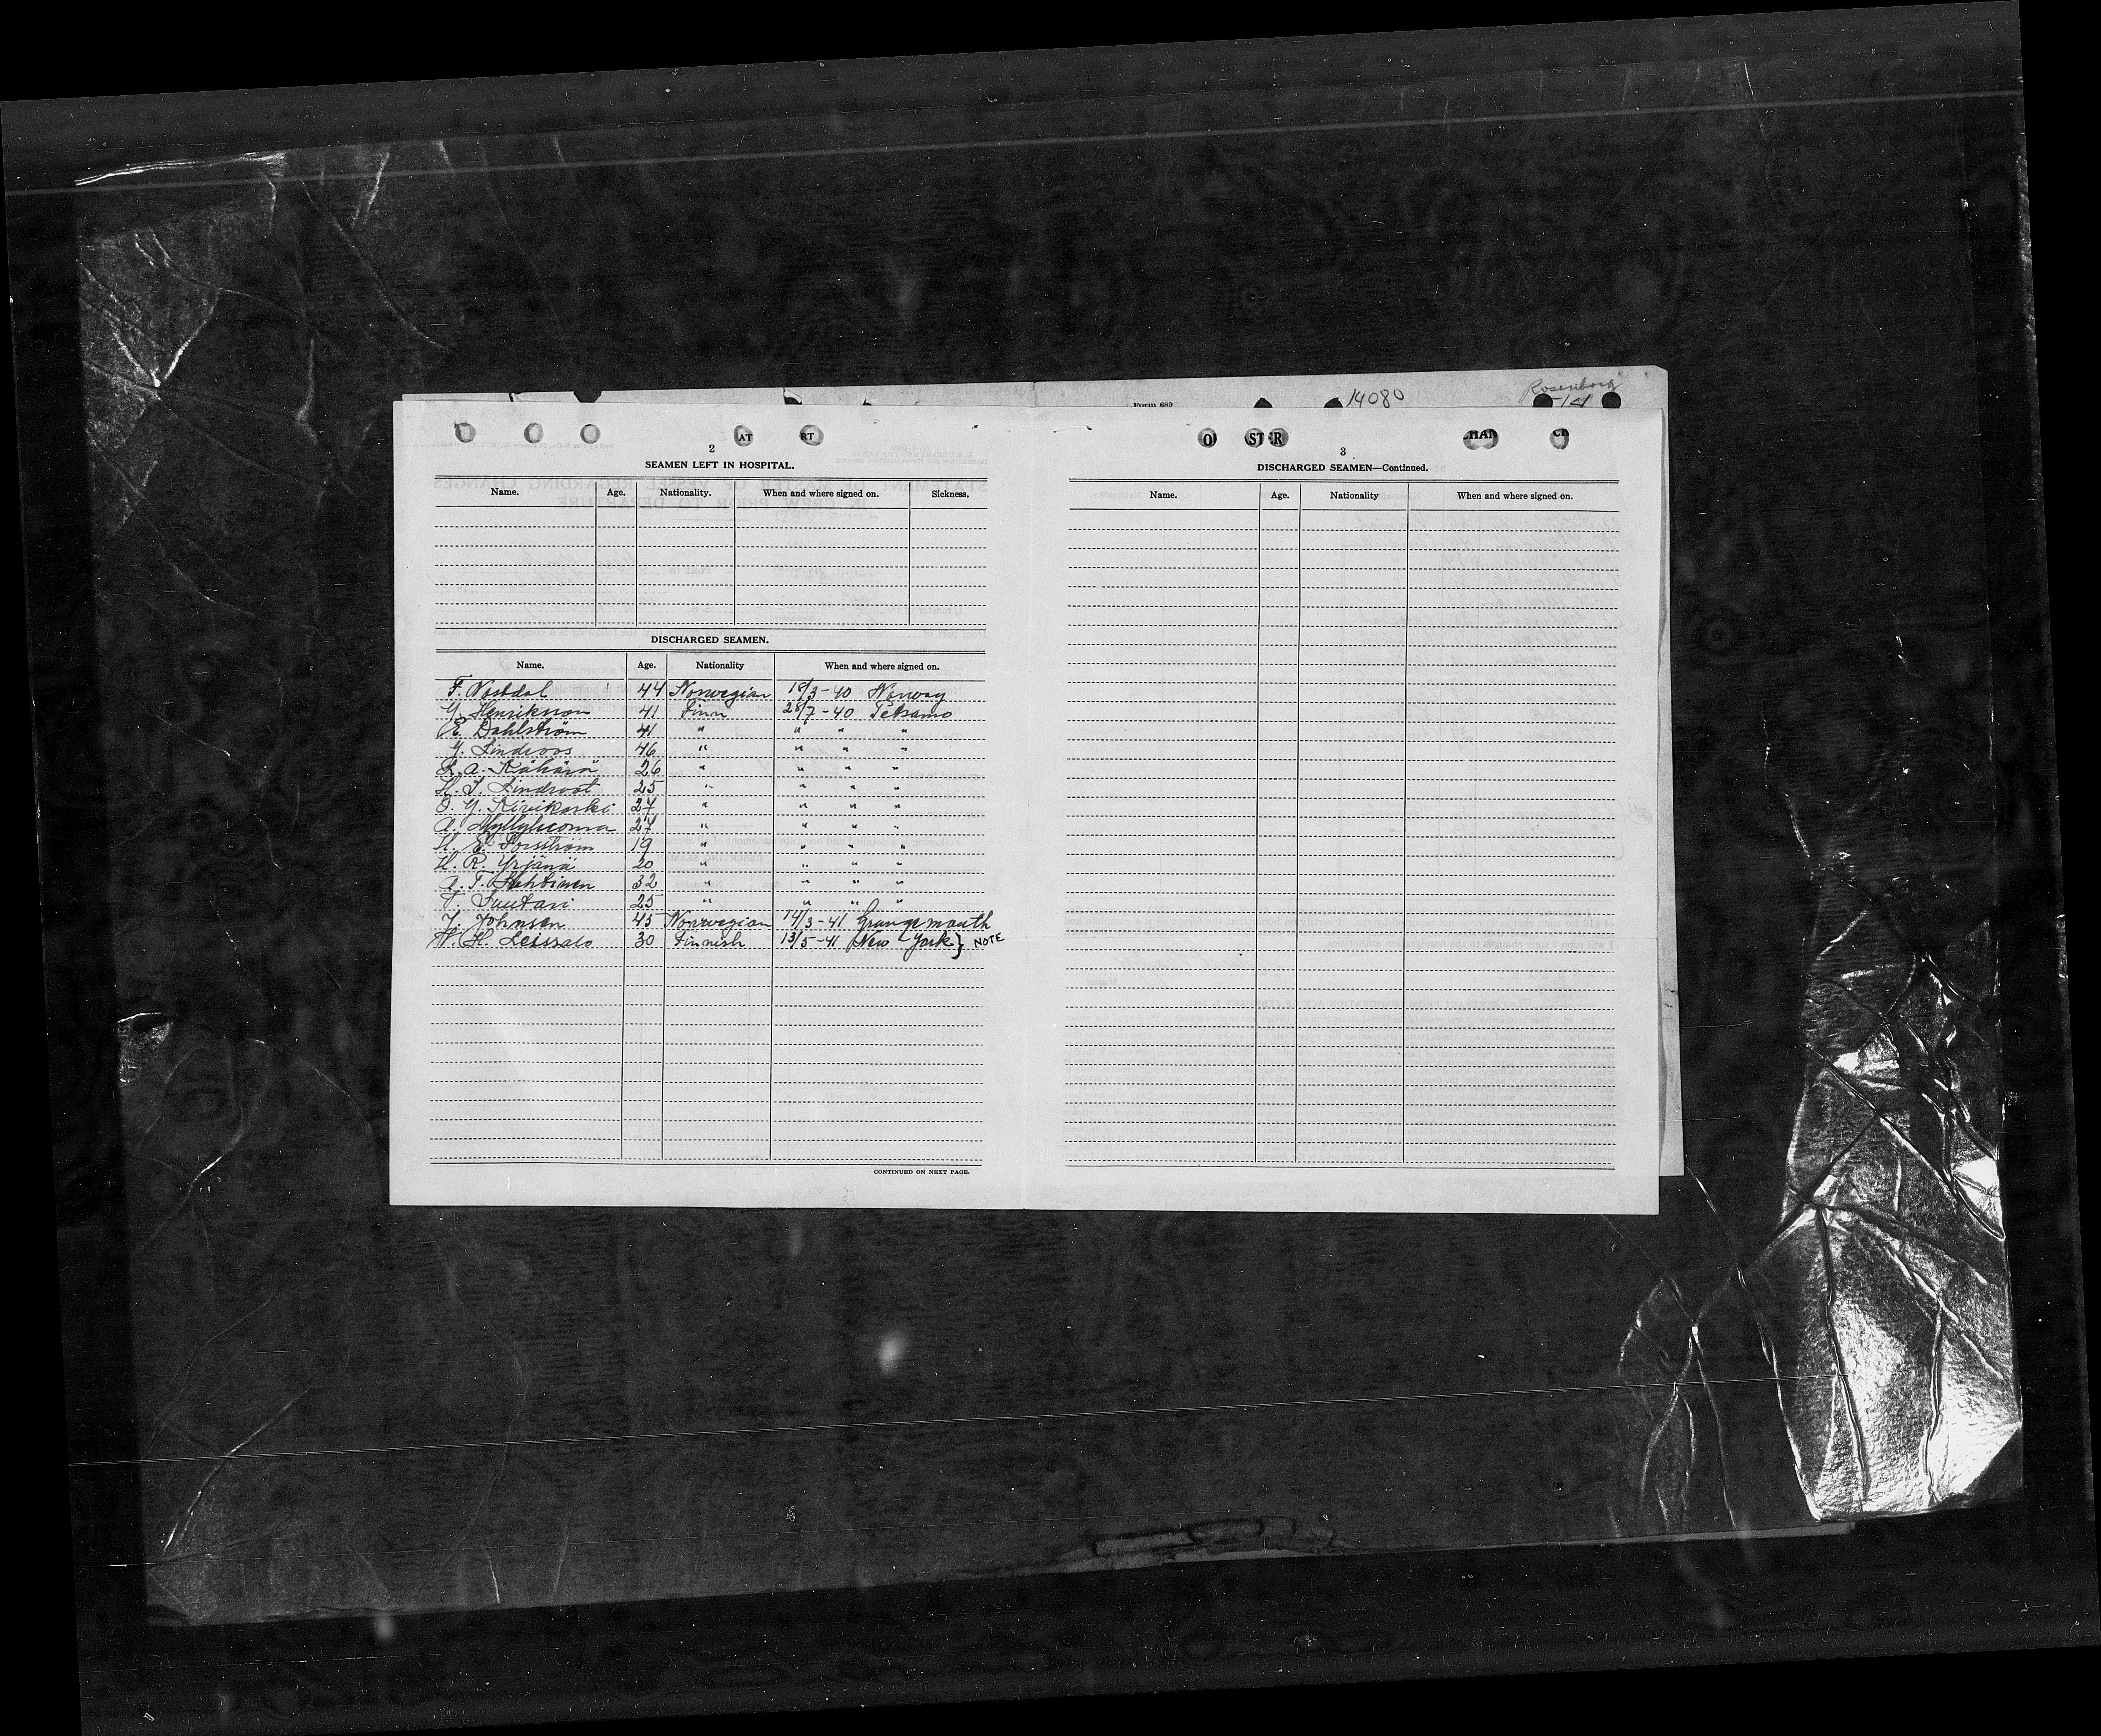 Form 689 14080 Rosenborg
14
AT RT
2
SEAMEN LEFT IN HOSPITAL.
Name. Age. Nationality. When and where signed on. Sickness.
DISCHARGED SEAMEN.
Name. Age. Nationality When and where signed on.
F. Nostdal 44 Norwegian 18/3-40 Norway
G. Henriksson 41 Finn 28/7-40 Petsamo
E. Dahlström 41 " " " "
G. Lindroos 46 " " " "
A. 26 " " " "
25 " " " "
Kivikoski 27 " " " "
A. 27 " " " "
H. E. Forsström 19 " " " "
H. R. Yrjänä 20 " " " "
A. T. 32 " " " "
25 " " " "
J. Johnsen 45 Norwegian 14/3-41 Grangemouth
H. Leissalo 30 Finnish 13/5-41 New York } NOTE
CONTINUED ON NEXT PAGE.
O STER HAN
3
DISCHARGED SEAMEN—Continued.
Name. Age. Nationality When and where signed on.